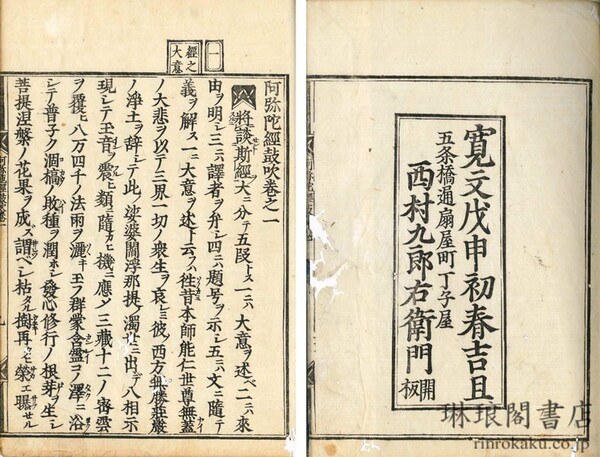 一
經之
大意
阿弥陀經鼓吹卷之一
將談斯經大ニ分テ五段トス一ニハ大意ヲ述ベ二ニハ來
由ヲ明シ三ニハ譯者ヲ弁シ四ニハ題号ヲ示シ五ニハ文ニ隨テ
義ヲ解ス一ニ大意ヲ述ト云フハ徃昔本師能仁世尊無蓋
ノ大悲ヲ以テ三界一切ノ衆生ヲ哀ミ彼ノ西方無勝莊嚴
ノ浄土ヲ辞シテ此ノ娑婆閻浮那提ノ濁世ニ出テ八相示
現シテ玉音ヲ震ヒ類ニ隨カヒ機ニ應シ三藏十二ノ密雲
ヲ覆ヒ八万四千ノ法雨ヲ灑キ玉フ群蒙含靈ヲノ澤ニ浴
シテ普子ク涸槁ノ敗種ヲ潤ホシ發心修行ノ根芽ヲ生シ
菩提涅槃ノ花果ヲ成ス謂ベシ枯タル樹再ヒ榮エ
寛文戊申初春吉旦
五条橋通扇屋町丁子屋
西村九郎右衛門開板
琳琅閣書店
rinrokaku.co.jp